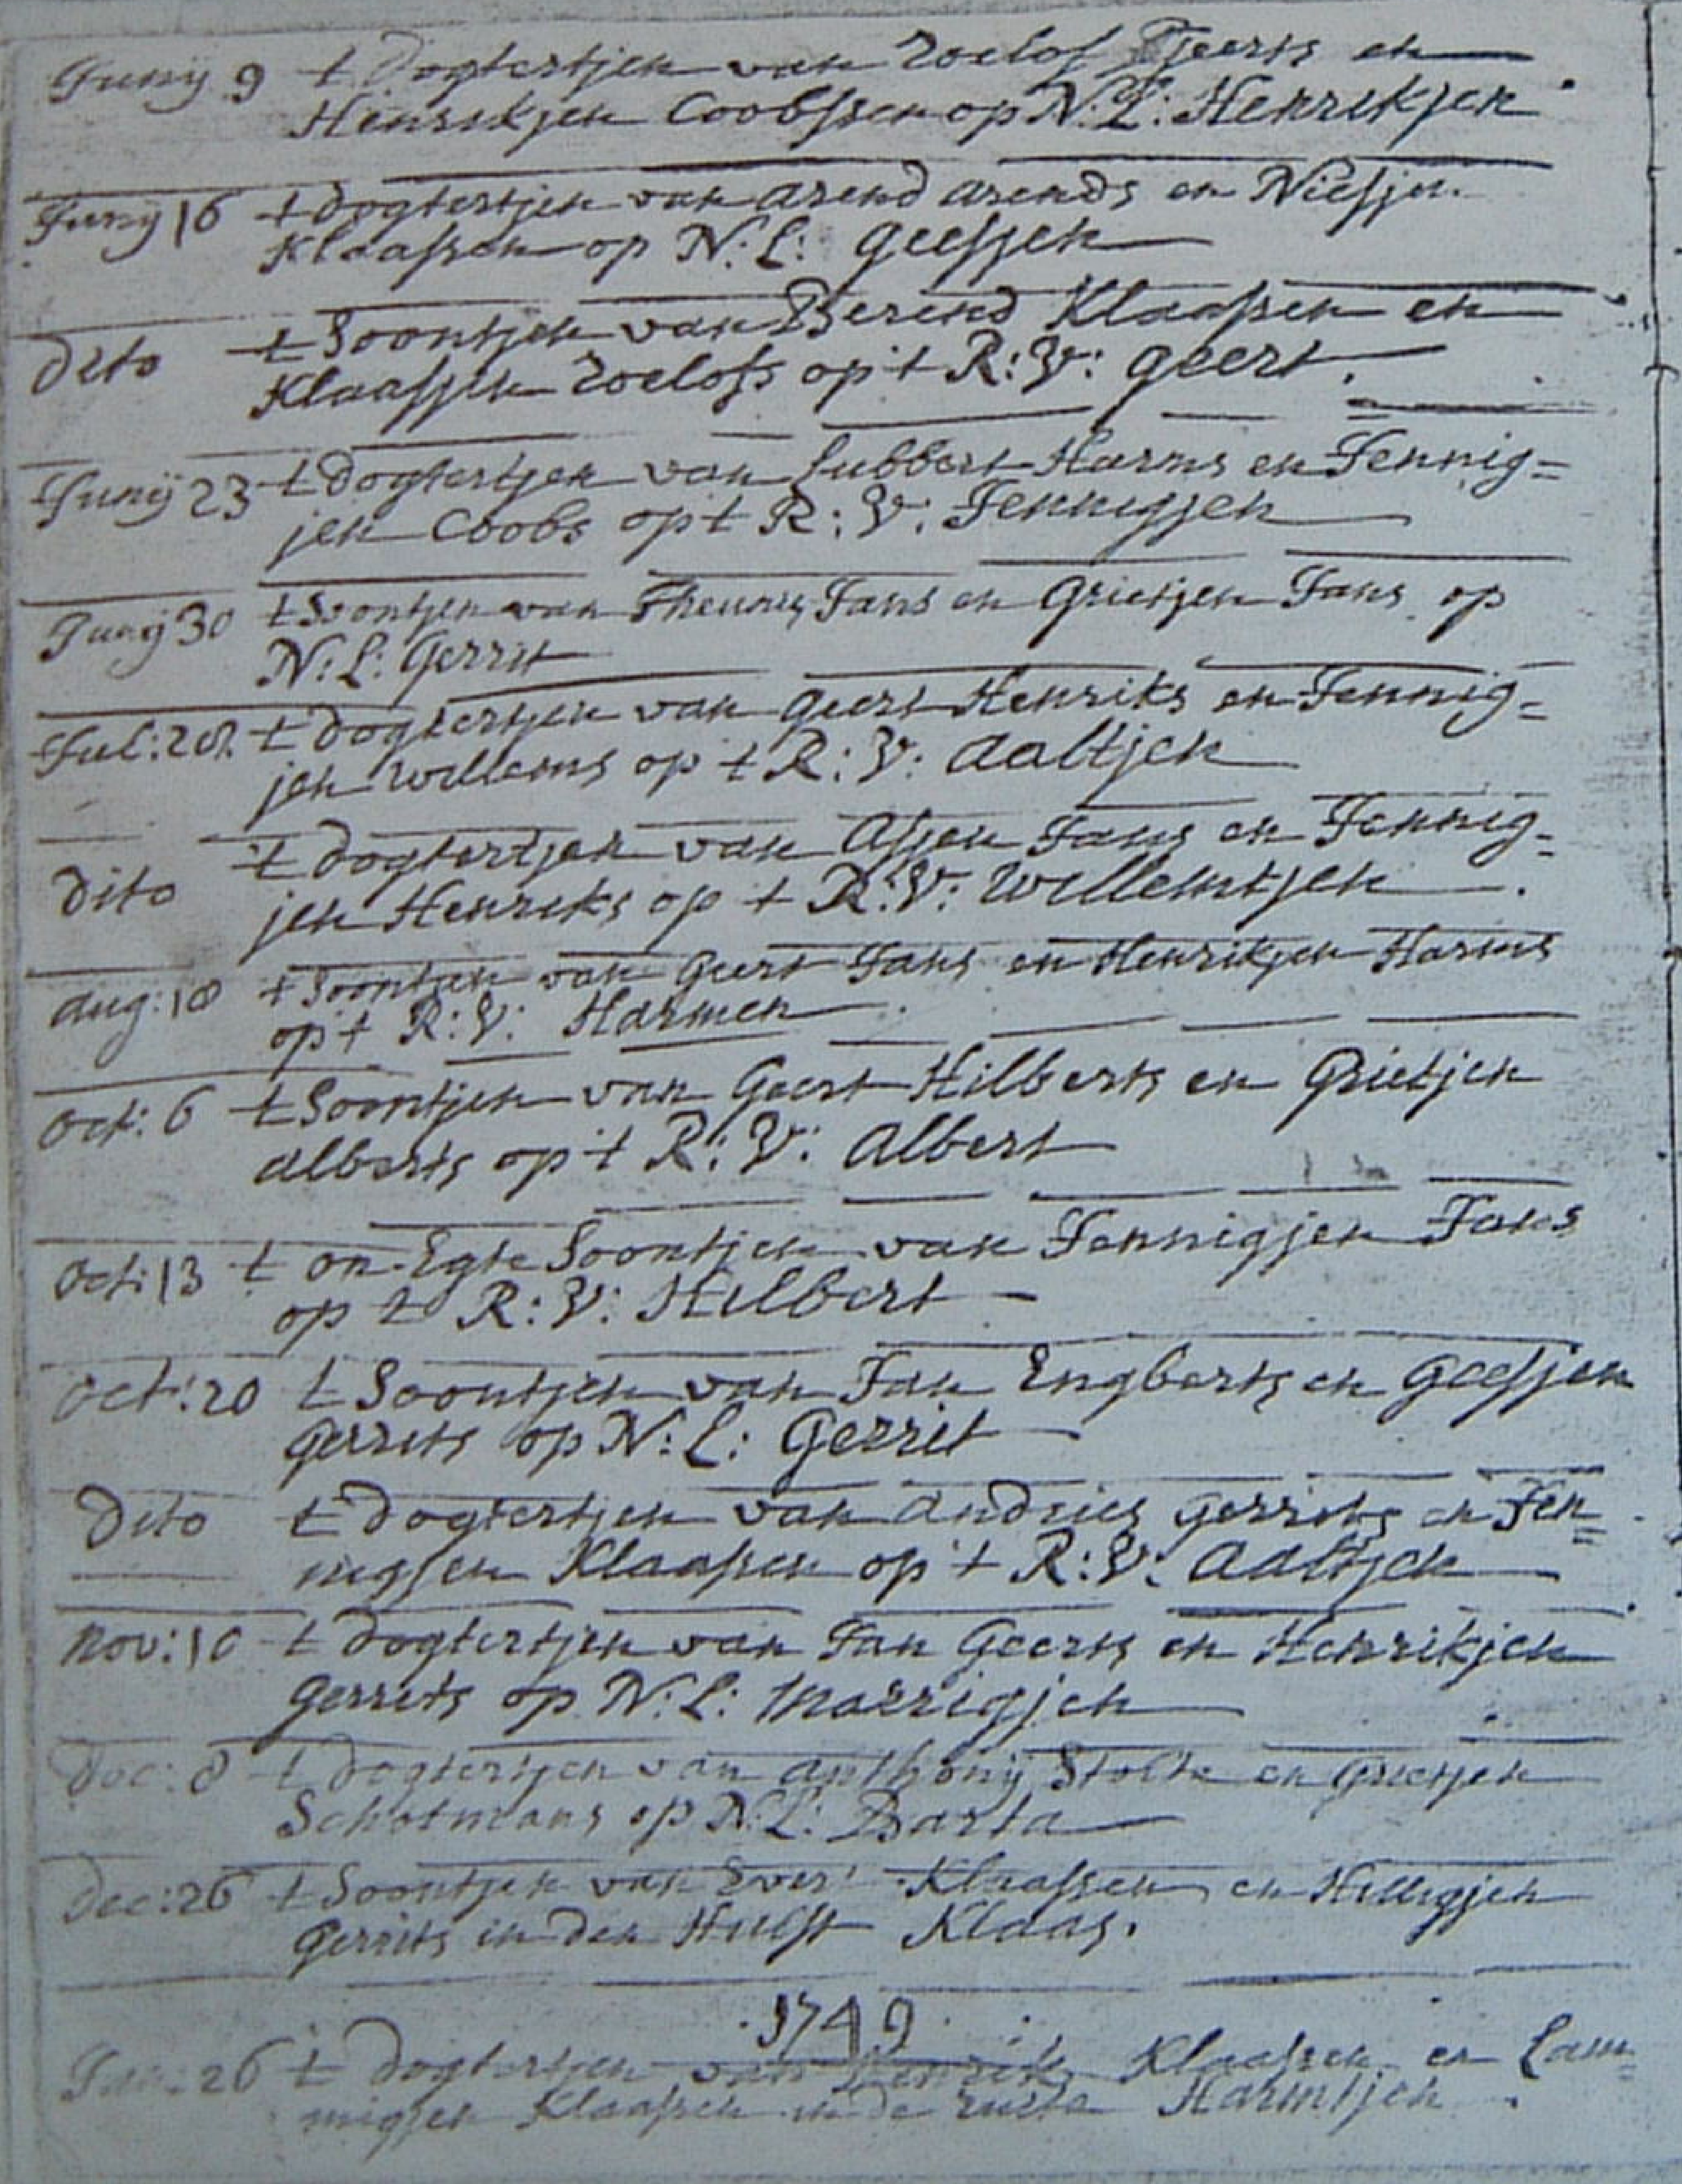 Junij 9 t Dogtertjen van Roelof Geerts en
Henrikjen Coobssen op N: L: Henrikjen
Junij 16 t dogtertjen van Arend Arends en Niesjen
Klaassen op N: L: Geesjen
Dito t Soontjen van Berend Klaassen en
Klaasjen Roelofs op t R: V: Geert.
Junij 23 t dogtertjen van Lubbert Harms en Jennig=
jen Coobs op t R: V: Jennigjen
Junij 30 t Soontjen van Theunis Jans en Grietjen Jans op
N: L: Gerrit
Jul: 28. t dogtertjen van Geert Henriks en Jennig=
jen Willems op t R: V: Aaltjen
Dito t dogtertjen van Assen Jans en Jennig=
jen Henriks op t R: V: Willemtjen.
Aug: 18 t Soontjen van Geert Jans en Henrikjen Harms
op t R: V: Harmen
Oct: 6 t Soontjen van Geert Hilberts en Grietjen
Alberts op t R: V: Albert
Oct: 13 t on-Egte Soontjen van Jennigjen Jans
op t R: V: Hilbert
Oct: 20 t Soontjen van Jan Engberts en Geesjen
Gerrits op N: L: Gerrit
Dito t Dogtertjen van Andries Gerrits en Jen=
nigjen Klaassen op 't R: V: Aaltjen
Nov: 10 t dogtertjen van Jan Geerts en Henrikjen
Gerrits op N: L: Marrigjen
Dec: 8 t Dogtertjen van Anthonij Stolte en Grietjen
Schotmans op N: L: Barta
Dec: 26 t Soontjen van Evert Klaassen en Hilligjen
Gerrits in den Hulst Klaas.
1749
Jan: 26 t Dogtertjen van Henrik Klaassen en Lam=
migjen Klaassen in de Harmtjen